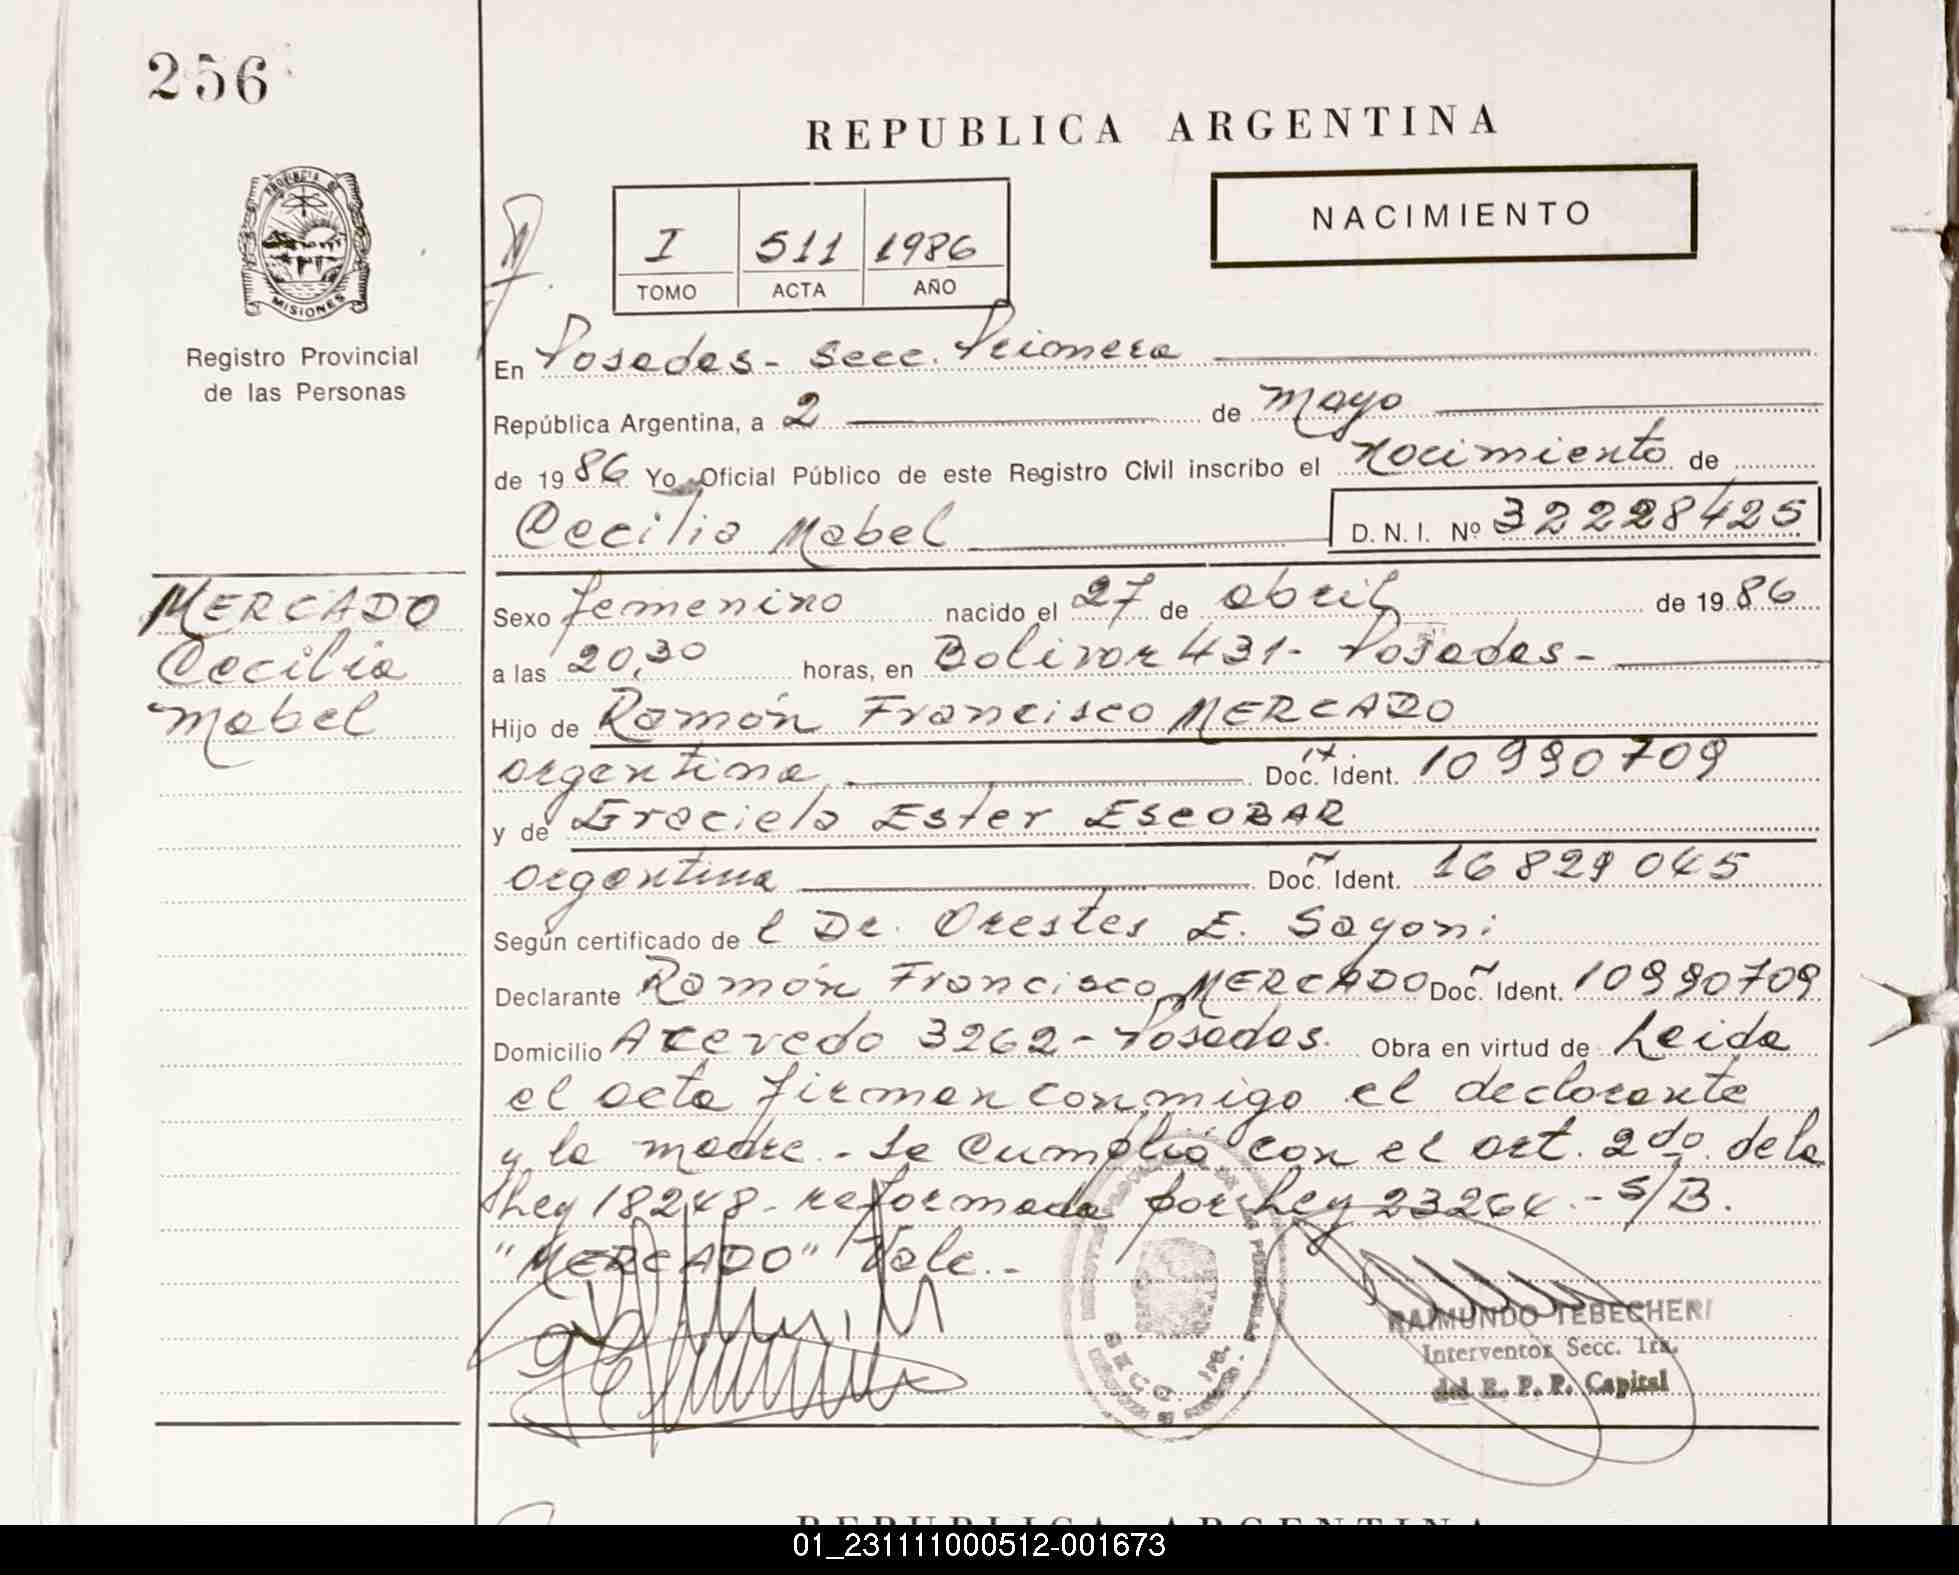 256
REPUBLICA ARGENTINA
PROVINCIA DE
MISIONES
Registro Provincial
de las Personas
NACIMIENTO
I 511 1986
TOMO ACTA AÑO
En Posadas - Secc. Primera
República Argentina, a 2 de mayo
de 1986 Yo Oficial Público de este Registro Civil inscribo el nacimiento de
Cecilia Mabel D.N.I. Nº 32228425
MERCADO
Cecilia
Mabel
Sexo femenino nacido el 27 de abril de 1986
a las 20,30 horas, en Bolivar 431 - Posadas -
Hijo de Ramón Francisco MERCADO
argentina Doc. Ident. 10990709
y de Graciela Ester ESCOBAR
argentina Doc. Ident. 16829045
Según certificado de l Dr. Orestes E. Sayoni
Declarante Ramón Francisco MERCADO Doc. Ident. 10990709
Domicilio Acevedo 3262 - Posadas. Obra en virtud de Leida
el acta firman conmigo el declarante
y la madre. - Se cumplió con el art. 2do. de la
Ley 18248 - reformada por Ley 23264. - S/B.
"MERCADO" Vale. -
SECC. 1ra.
RAIMUNDO TEBECHERI
Interventor Secc. 1ra.
del R. P. P. Capital
REPUBLICA ARGENTINA
01_231111000512-001673